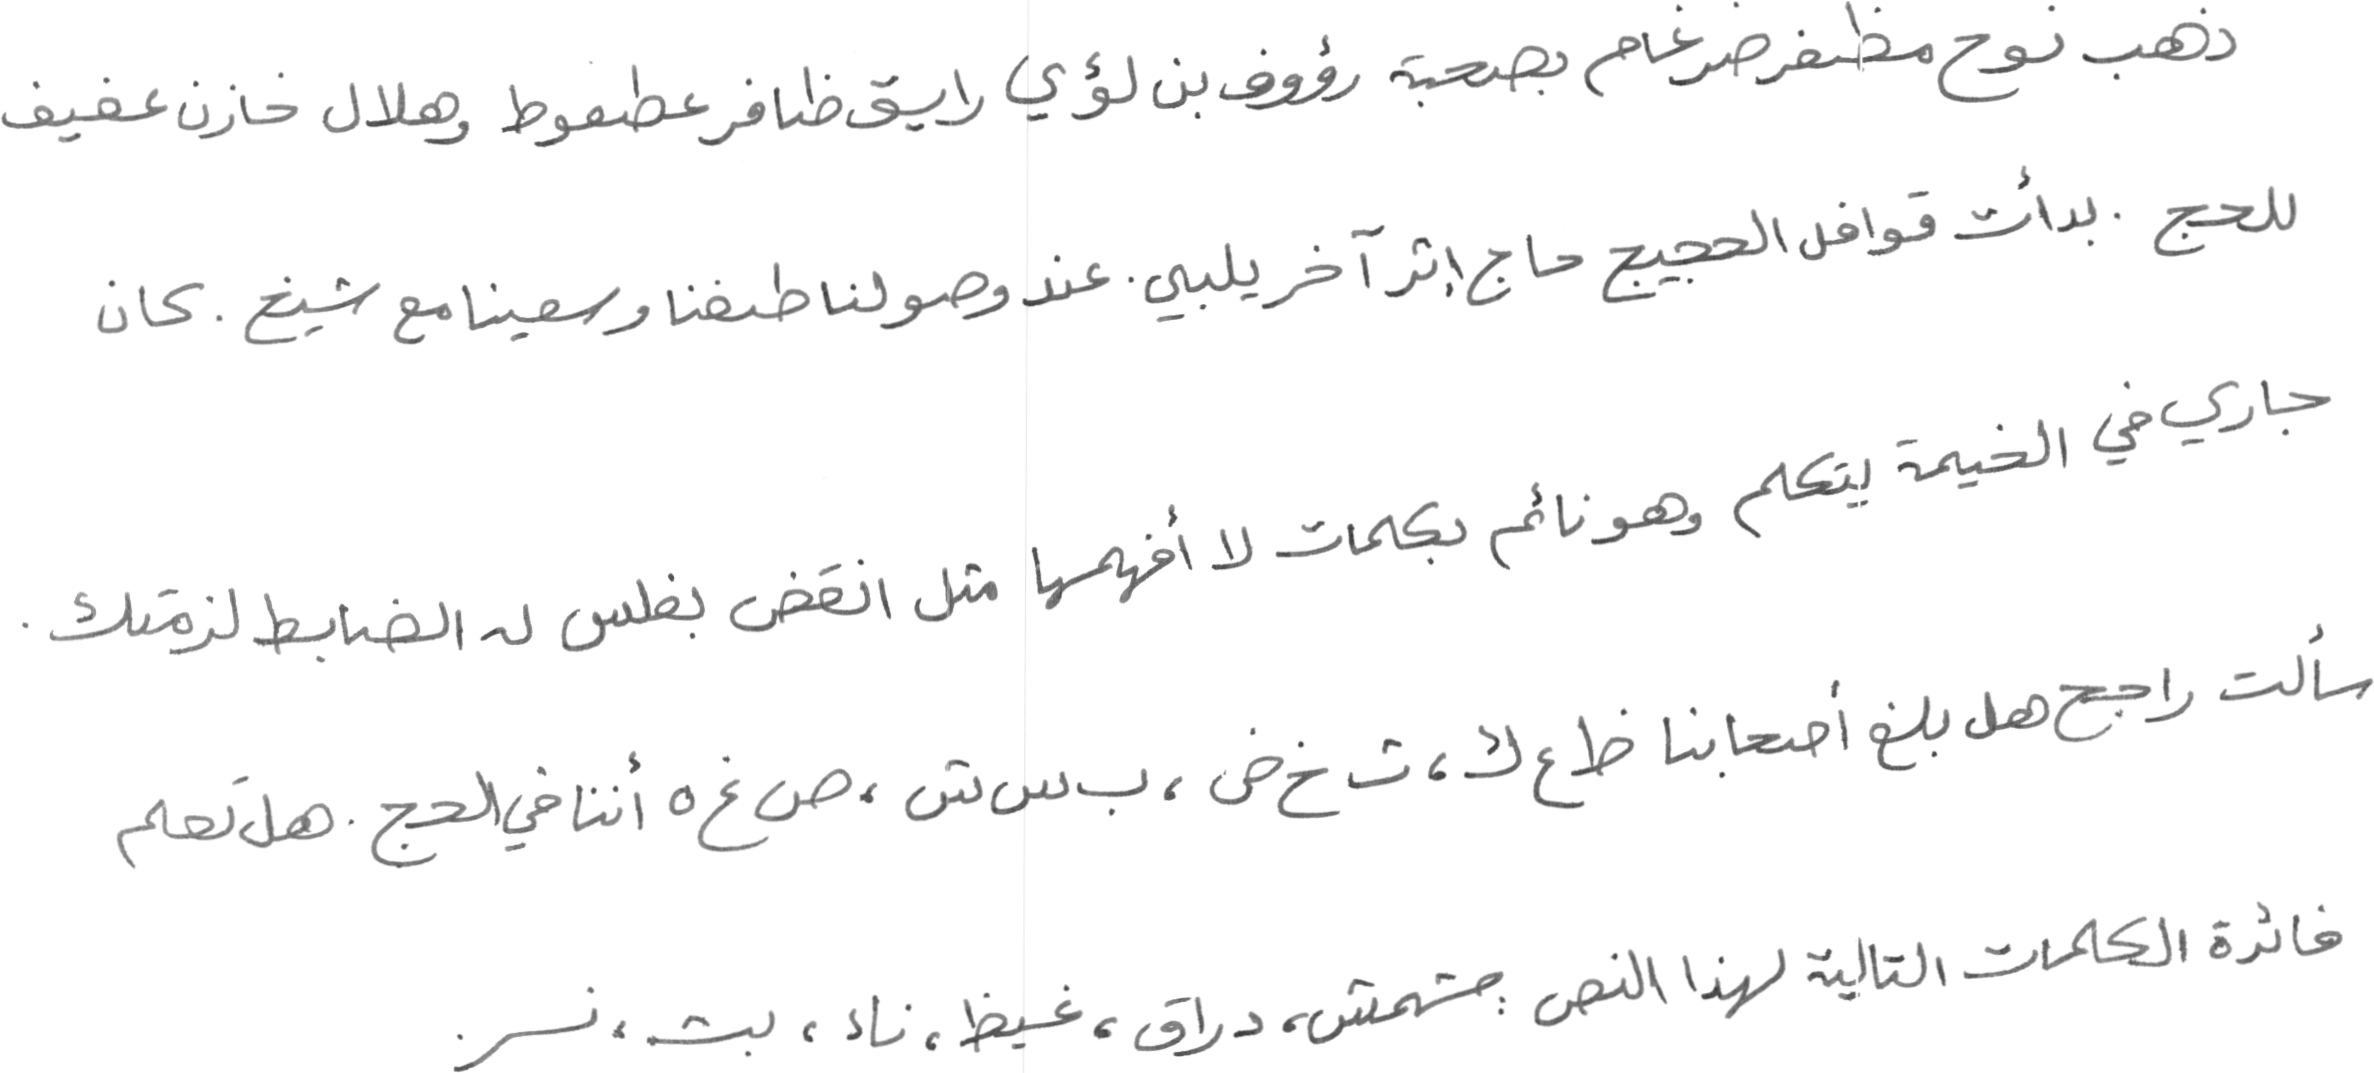 ذهب نوح مظفر ضرغام بصحبة رؤوف بن لؤي رايق ظافر عطعوط وهلال خازن عفيف
للحج . بدأت قوافل الحجيج حاج إثر آخر يلبي . عند وصولنا طفنا وسعينا مع شيخ . كان
جاري في الخيمة يتكلم وهو نائم بكلمات لا أفهمها مثل انقض بغلس له الضابط لزمتك .
سألت راجح هل بلغ أصحابنا ظ ع ك ، ث خ ض ، ب س ش ، ص غ ه أننا في الحج . هل تعلم
فائدة الكلمات التالية لهذا النص : مشمش ، دراق ، غيظ ، ناء ، بث ، نسر .